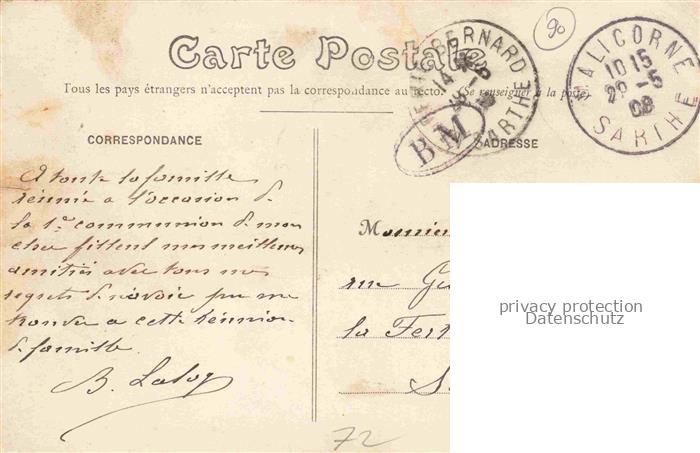 Carte Postale
90
Tous les pays étrangers n'acceptent pas la correspondance au recto. (Se renseigner à la poste)
BERNARD
SARTHE
MALICORNE
10 15
29 -5
08
SARTHE
BM
CORRESPONDANCE
ADRESSE
A toute la famille
réunie a l'occasion de
la 1re communion de mon
cher filleul mes meilleures
amitiés avec tous mes
regrets de n'avoir pu me
trouver a cette réunion
de famille.
B. Laloy
Monsieur
rue
la Fert
S
privacy protection
Datenschutz
72